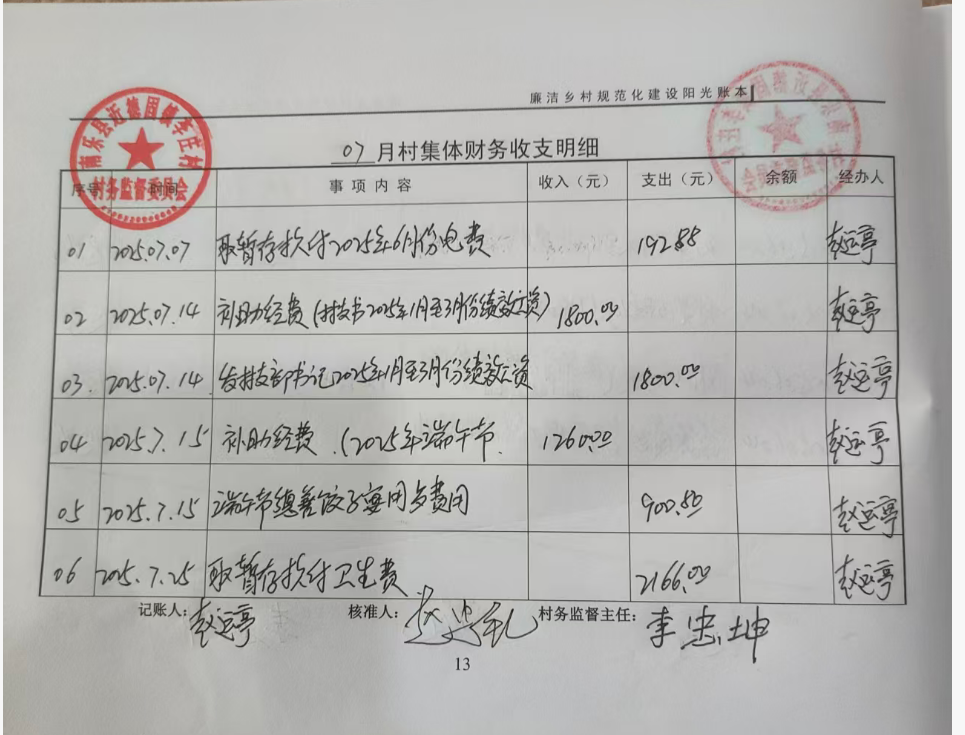 廉洁乡村规范化建设阳光账本
07月村集体财务收支明细
南乐县近德固镇李庄村
村务监督委员会
序号 时间 事项内容 收入（元） 支出（元） 余额 经办人
01 2025.07.07 取暂存款付2025年6月份电费 192.88 赵运亭
02 2025.07.14 补助经费（村支书2025年1月至3月份绩效工资） 1800.00 赵运亭
03. 2025.07.14 发村支部书记2025年1月至3月份绩效工资 1800.00 赵运亭
04 2025.7.15 补助经费.（2025年端午节. 1260.00 赵运亭
05 2025.7.15 端午节慈善饺子宴用多费用 900.80 赵运亭
06 2025.7.25 取暂存款付卫生费 2166.00 赵运亭
记账人：赵运亭 核准人： 村务监督主任：李忠坤
13